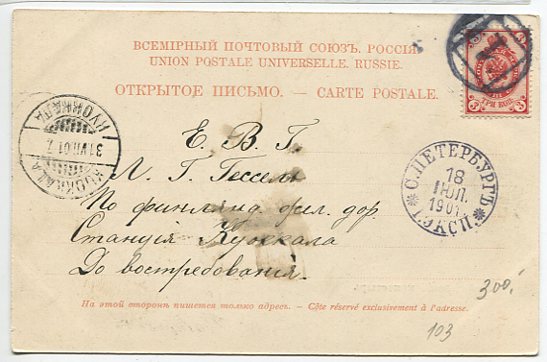 ВСЕМІРНЫЙ ПОЧТОВЫЙ СОЮЗЪ. РОССІЯ.
UNION POSTALE UNIVERSELLE. RUSSIE.
ОТКРЫТОЕ ПИСЬМО. — CARTE POSTALE.
3 3
ТРИ КОП.
KUOKKALA
31.VII.01.7
КУОККАЛА
С.ПЕТЕРБУРГЪ
18
ІЮЛ.
1901
1 ЭКСП.
Е. В. Г.
Л. Г. Гессель
По финлянд. жел. дор.
Станція Куоккала
До востребованія.
300.
На этой сторонѣ пишется только адресъ. — Côte réservé exclusivement à l'adresse.
103